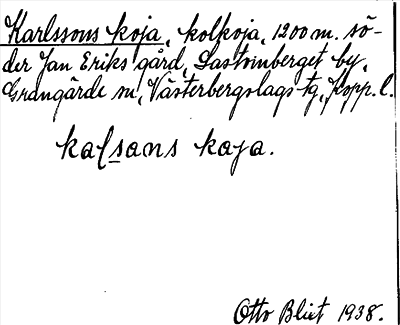 Karlssons koja, kolkoja, 1200 m. sö-
der Jan Eriks gård, Lastomberget by,
Grangärde sn, Västerbergslags tg, Kopp. l.
kaſsans kaja.
Otto Blixt 1938.